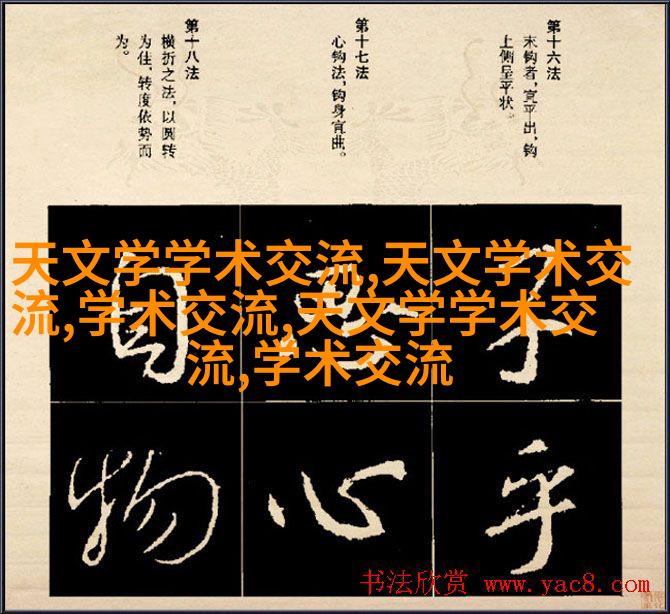 第十六法
末钩者,宜平出,钩
上侧呈平状
第十七法
心钩法,钩身宜曲。
第十八法
横折之法,以圆转
为佳,转度依势而
为。
天文学学术交流,天文学术交
流,学术交流,天文学学术交
流,学术交流
乎
心
物
书法欣赏 www.yac8.com